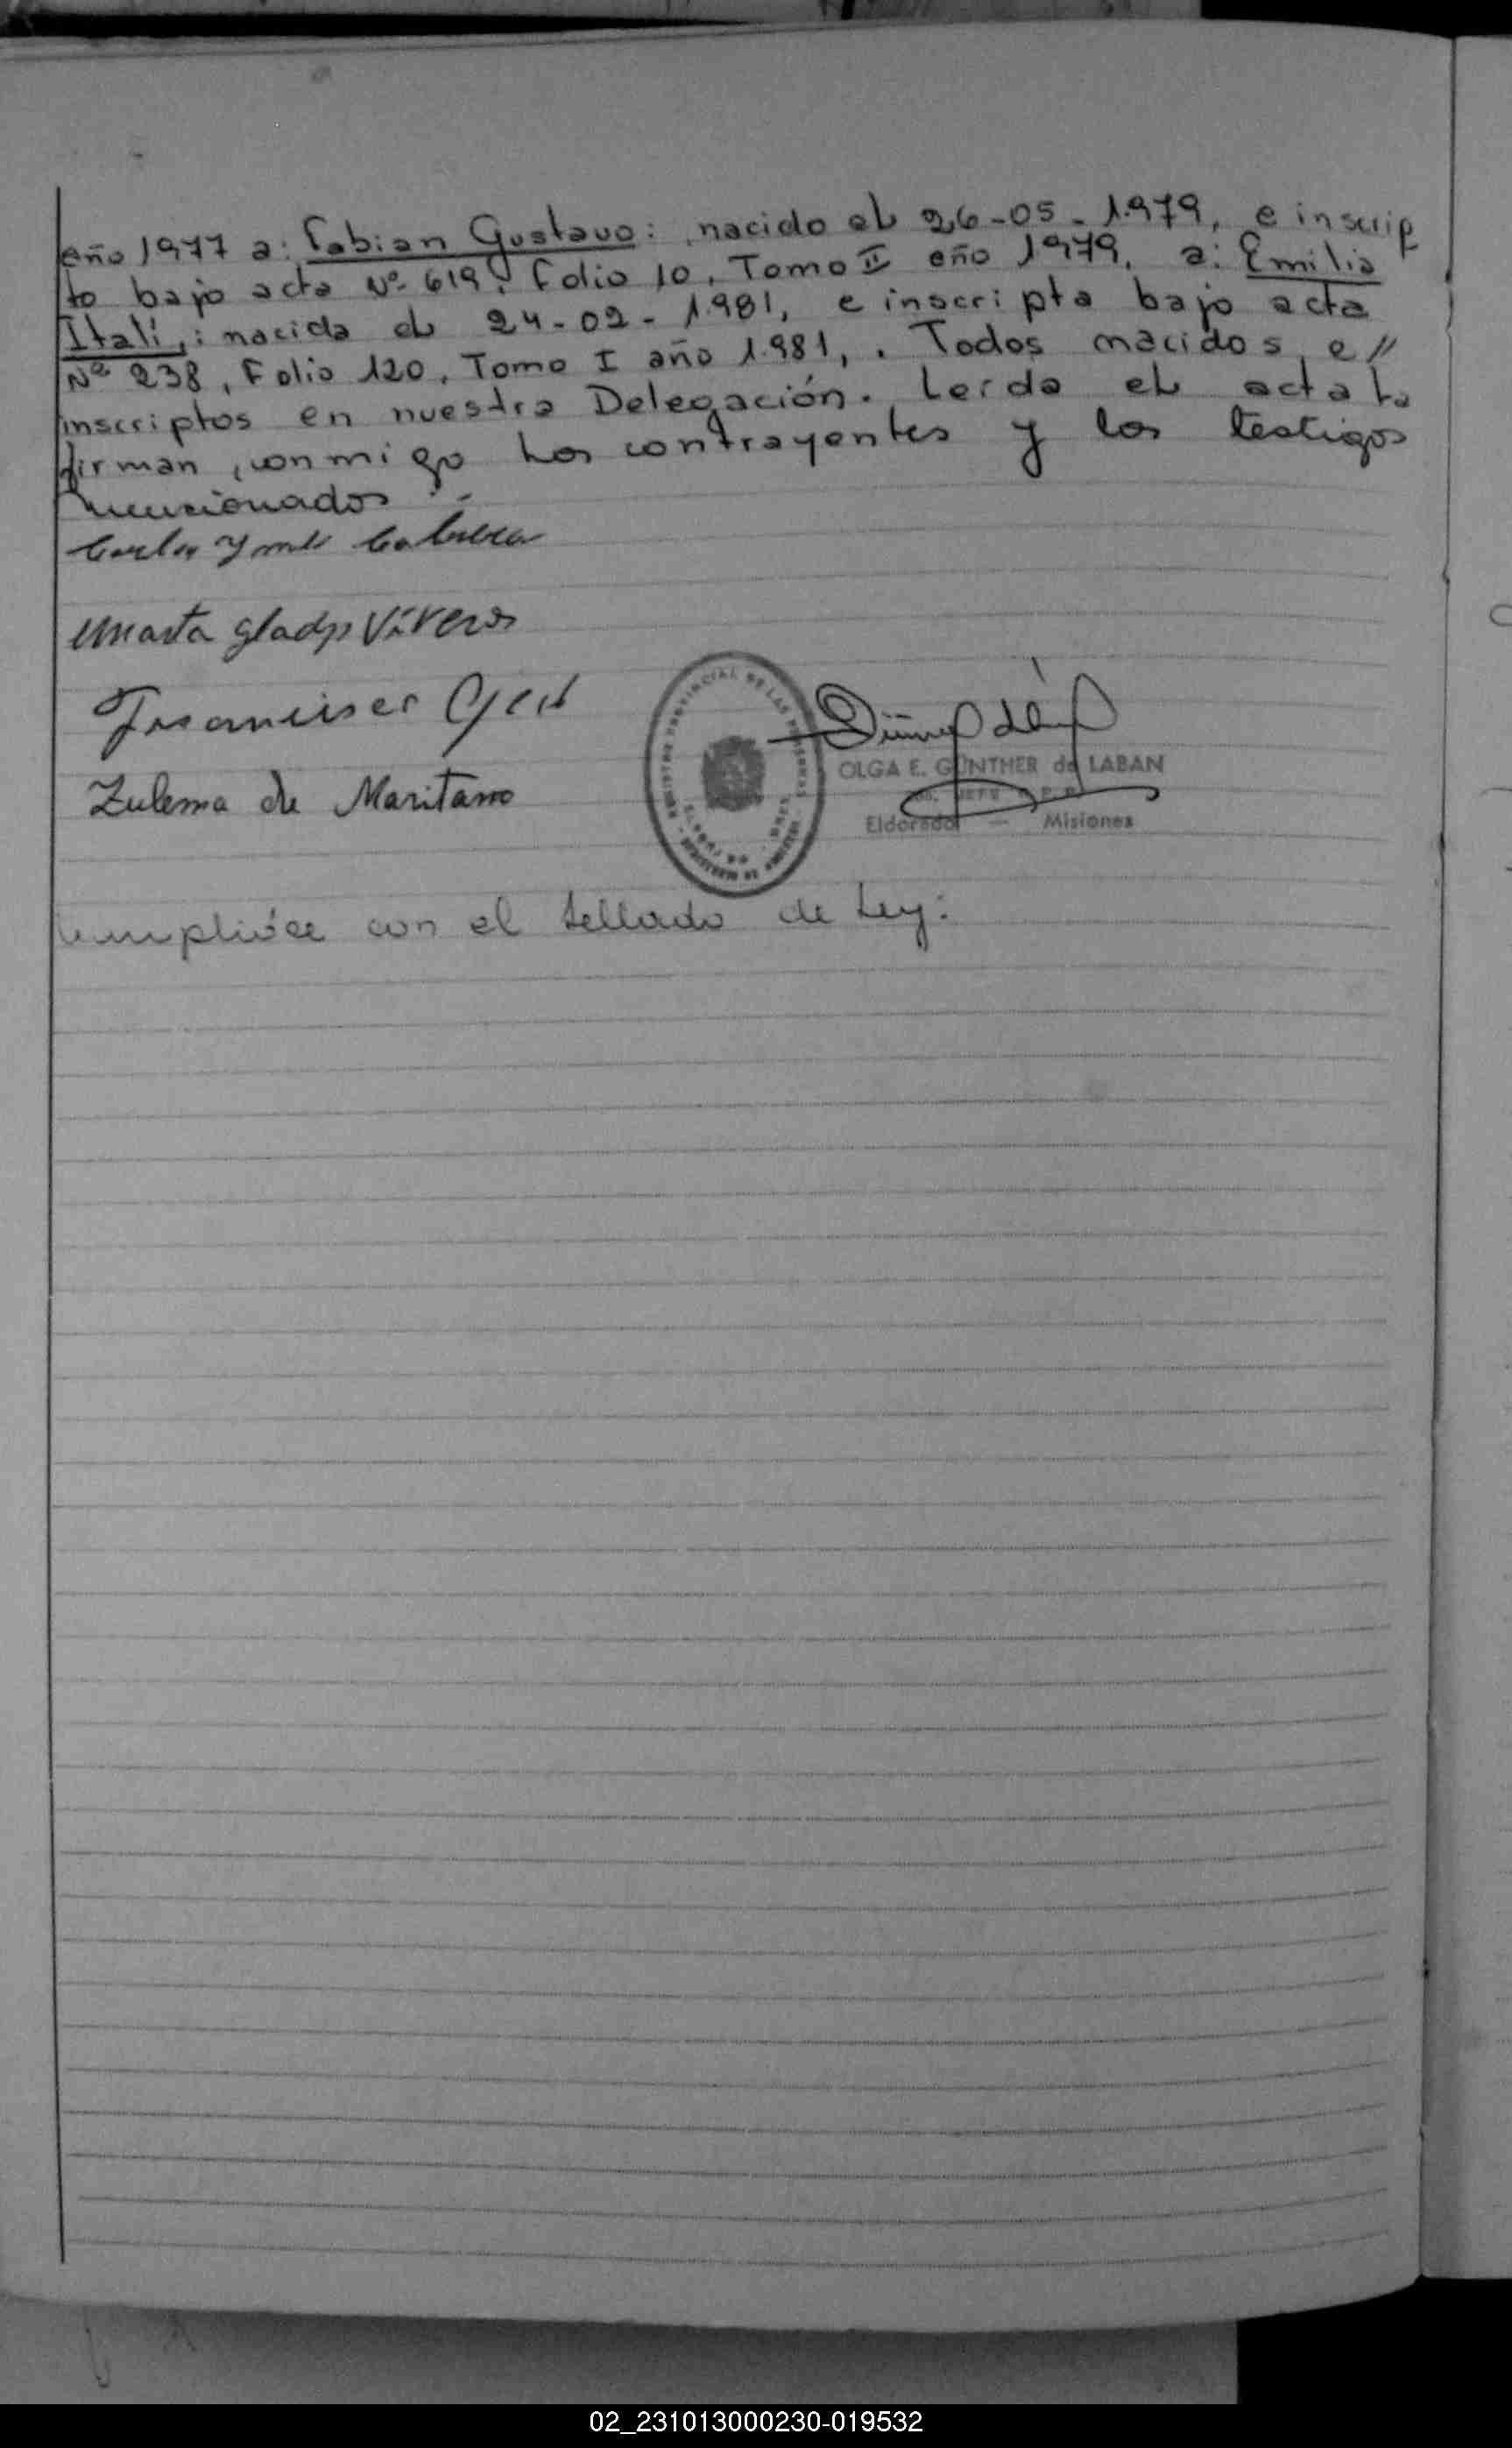 año 1977 a: Fabian Gustavo: nacido el 26-05-1.979, e inscrip
to bajo acta Nº 619, Folio 10, Tomo II año 1979, a: Emilia
Itatí,: nacida el 24-02-1.981, e inscripta bajo acta
Nº 238, Folio 120, Tomo I año 1.981,. Todos nacidos, e//
inscriptos en nuestra Delegación. Leída el acta la
firman, conmigo los contrayentes y los testigos
mencionados
Carlos Cabrera
Marta Gladys Viveros
Zulema de Maritano
OLGA E. GÜNTHER de LABAN
JEFE R. P. P.
Eldorado — Misiones
Cumplióse con el sellado de Ley:
02_231013000230-019532